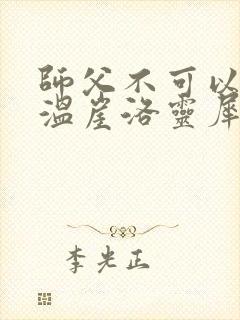 師父不可以
溫崖洛靈犀
李光正